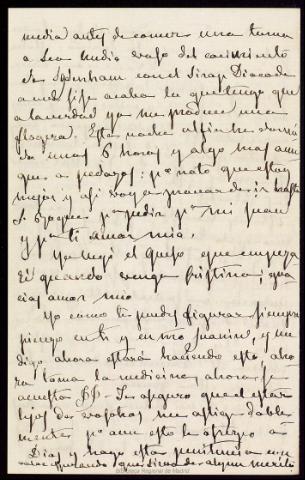 media antes de comer una toma
o sea medio vaso del cocimiento
de con el Sirop Diacode
a ver si se acaba la que tengo que
a la verdad ya me produce una
flogera. Esta noche al fin he dormi
do unas 6 horas y algo mas aun
que a pedazos: pº noto que estoy
mejor y asi voy a procurar ir hasta
S. pª pedir pr mi Juan
y pr ti amor mia.
Ya llegó el Quijo que empeza
ré quando venga Cristina; gra
cias amor mio
Yo como te puedes figurar siempre
pienso en ti y en mo Juanin, y me
digo ahora estará haciendo esto, aho
ra toma la medicina, ahora se
acuesta &&. Te aseguro que el estar
lejos de vosotros me aflige doble
mente pº aun esto le ofrezco a
Dios y hago esta penitencia
que sirva de algun merito
Biblioteca Regional de Madrid